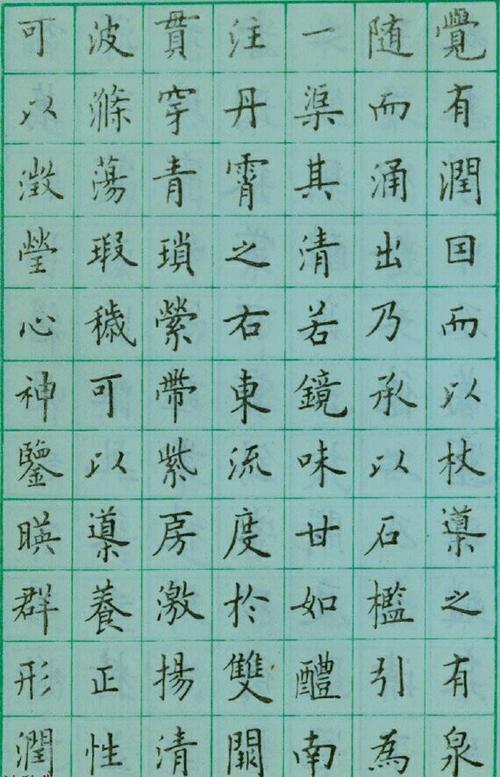 覺有潤囙而以杖導之有泉
随而涌出乃承以石檻引為
一渠其清若鏡味甘如醴南
注丹霄之右東流度於雙闕
貫穿青瑣縈帶紫房激揚清
波滌蕩瑕穢可以導養正性
可以澂瑩心神鑒暎群形潤